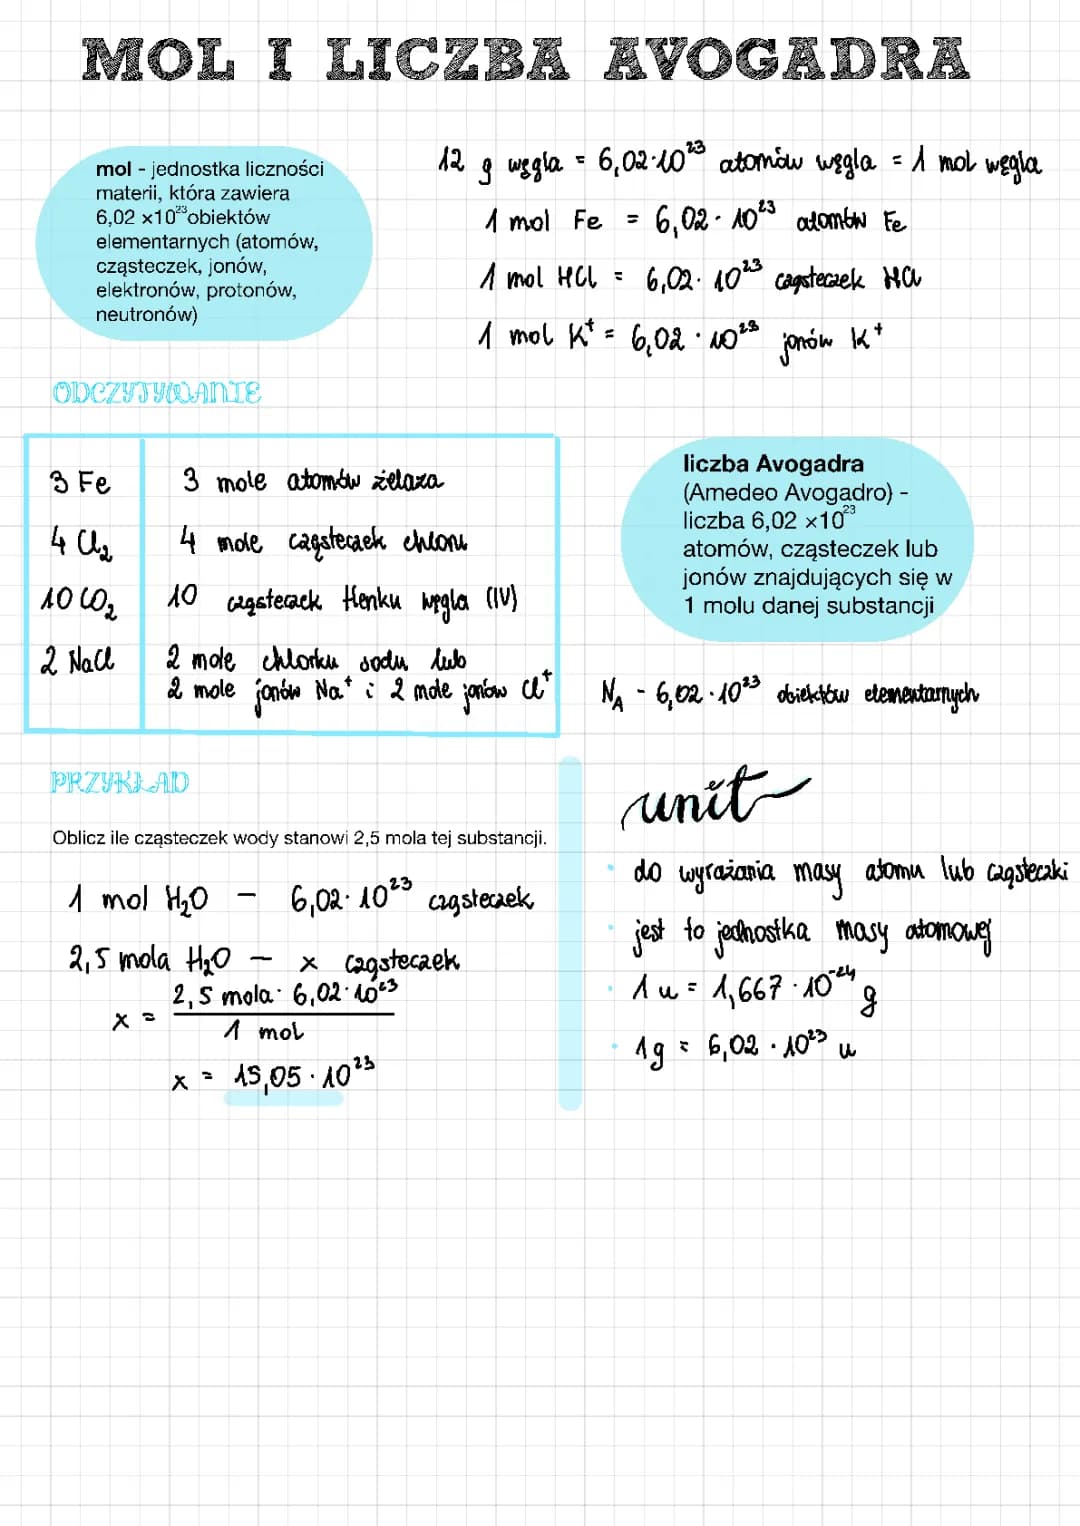 MOL I LICZBA AVOGADRA
mol - jednostka liczności
materii, która zawiera
6,02 ×10²³obiektów
elementarnych (atomów,
cząsteczek, jonów,
elektronów, protonów,
neutronów)
12 g węgla = 6,02·10²³ atomów węgla = 1 mol węgla
1 mol Fe = 6,02 · 10²³ atomów Fe
1 mol HCl = 6,02 · 10²³ cząsteczek HCl
1 mol K⁺ = 6,02 · 10²³ jonów K⁺
ODCZYTYWANIE
3 Fe 3 mole atomów żelaza
4 Cl₂ 4 mole cząsteczek chloru
10 CO₂ 10 cząsteczek tlenku węgla (IV)
2 NaCl 2 mole chlorku sodu lub
2 mole jonów Na⁺ i 2 mole jonów Cl⁺
liczba Avogadra
(Amedeo Avogadro) -
liczba 6,02 ×10²³
atomów, cząsteczek lub
jonów znajdujących się w
1 molu danej substancji
N_A - 6,02 · 10²³ obiektów elementarnych
PRZYKŁAD
Oblicz ile cząsteczek wody stanowi 2,5 mola tej substancji.
1 mol H₂O - 6,02 · 10²³ cząsteczek
2,5 mola H₂O - x cząsteczek
x = 2,5 mola · 6,02 · 10²³
1 mol
x = 15,05 · 10²³
unit
· do wyrażania masy atomu lub cząsteczki
· jest to jednostka masy atomowej
· 1 u = 1,667 · 10⁻²⁴ g
· 1g = 6,02 · 10²³ u